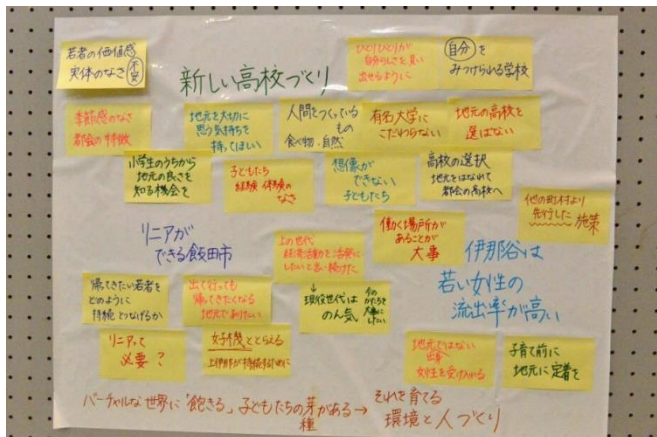 若者の価値感
実体のなさ 不安
新しい高校づくり
ひとりひとりが
自分らしさを
出せるように
自分を
みつけられる学校
季節感のなさ
都会の特徴
地元を大切に
思う気持ちを
持ってほしい
人間をつくっている
もの
食べ物・自然
有名大学に
こだわらない
地元の高校を
選ばない
小学生のうちから
地元の良さを
知る機会を
子どもたち
経験 体験の
なさ
想像が
できない
子どもたち
高校の選択
地元をはなれて
都会の高校へ
他の町村より
先行した 施策
リニアが
できる飯田市
上の世代
経済活動を活発に
したいと言い続けた
↓
現役世代は
のん気
今の
かたちを
大事に
したい
働く場所が
あることが
大事
伊那谷は
若い女性の
流出率が高い
帰ってきたい若者を
どのように
持続 つなげるか
出て行っても
帰ってきたくなる
地元でありたい
リニアって
必要?
好機ととらえる
上伊那が持続するために
地元ではない
女性を受けとめる
子育て前に
地元に定着を
バーチャルな世界に「飽きる」子どもたちの芽がある→
種
それを育てる
環境と人づくり